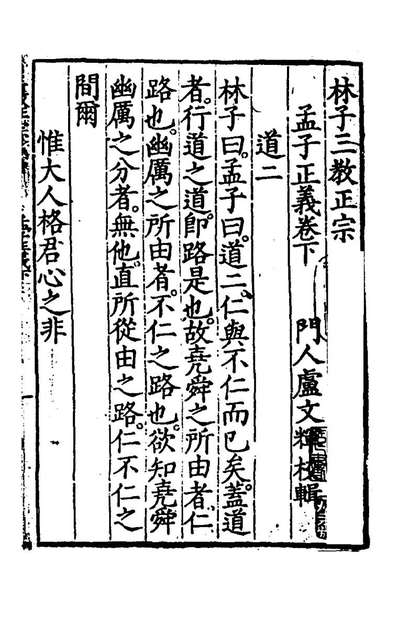 林子三教正宗
孟子正義卷下
門人盧文輝校輯
道二
林子曰。孟子曰。道二。仁與不仁而已矣。蓋道
者。行道之道。即路是也。故堯舜之所由者。仁
路也。幽厲之所由者。不仁之路也。欲知堯舜
幽厲之分者。無他。直所從由之路。仁不仁之
間爾
惟大人格君心之非